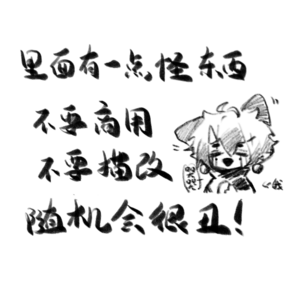 里面有一点怪东西
不要商用
不要描改
随机会很丑！